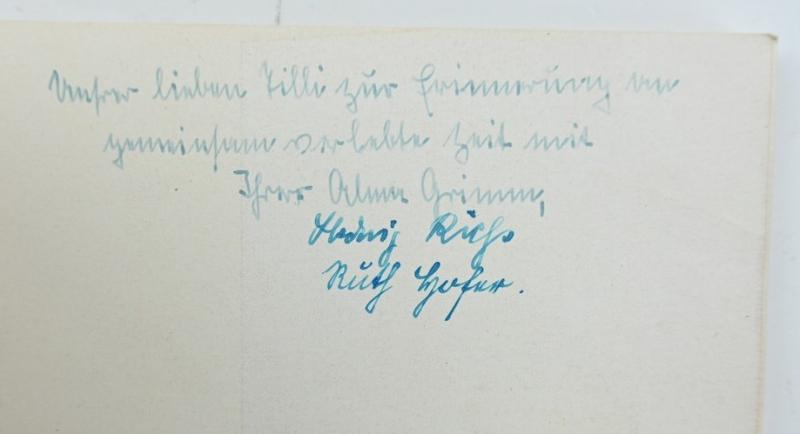 Unsrer lieben Tilli zur Erinnerung an
gemeinsam verlebte Zeit mit
Ihrer Alma Grimm,
Hedwig
Ruth Hofer.